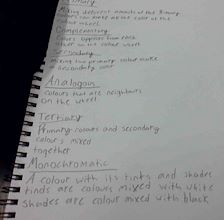 Primary
Mixing different amounts of the Primary
colours can make all the color of the
colour wheel
Complementary
Colors opposite from each
other on the colour wheel
Secondary
mixing two primary colour make
a secondary color
Analogous
Colours that are neighbours
on the wheel
Tertiary
Primary colours and secondary
colour's mixed
together
Monochromatic
A colour with its tints and shades
tinds are colours mixed with white
Shades are colour mixed with black